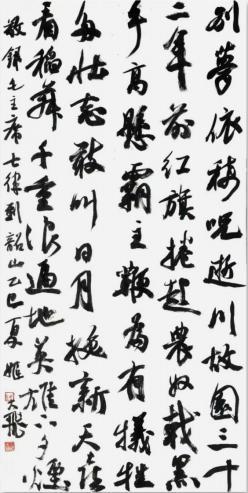 別夢依稀咒逝川故園三十
二年前紅旗捲起農奴戟黑
手高懸霸主鞭為有犧牲
多壮志敢叫日月換新天喜
看稻菽千重浪遍地英雄下夕煙
敬録毛主席七律到韶山乙巳夏